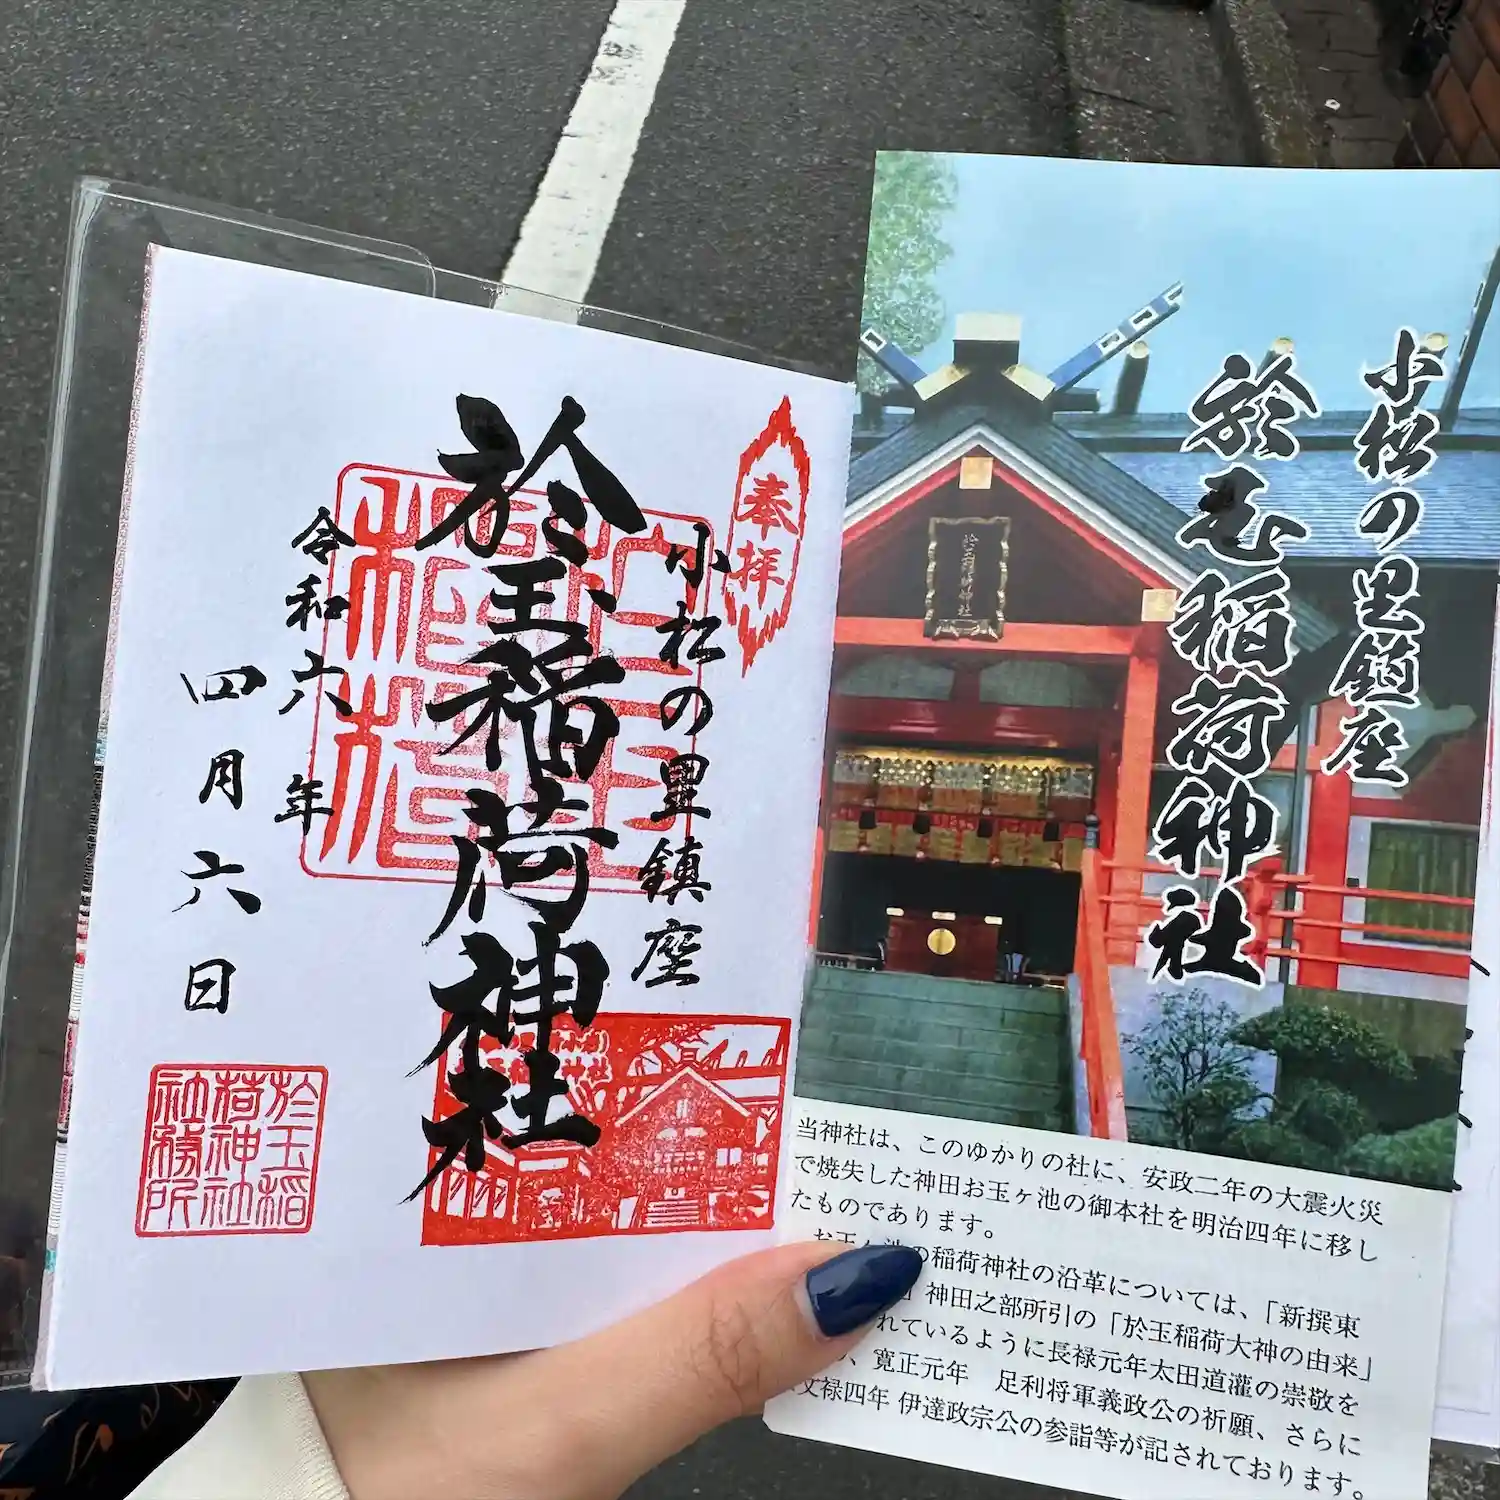 奉拝
小松の里鎮座
於玉稲荷神社
令和六年
四月六日
於玉稲
荷神社
社務所
小松の里鎮座
於玉稲荷神社
当神社は、このゆかりの社に、安政二年の大震火災
で焼失した神田お玉ヶ池の御本社を明治四年に移し
たものであります。
お玉ヶ池の稲荷神社の沿革については、「新撰東
神田之部所引の「於玉稲荷大神の由来」
れているように長禄元年太田道灌の崇敬を
、寛正元年　足利将軍義政公の祈願、さらに
文禄四年 伊達政宗公の参詣等が記されております。